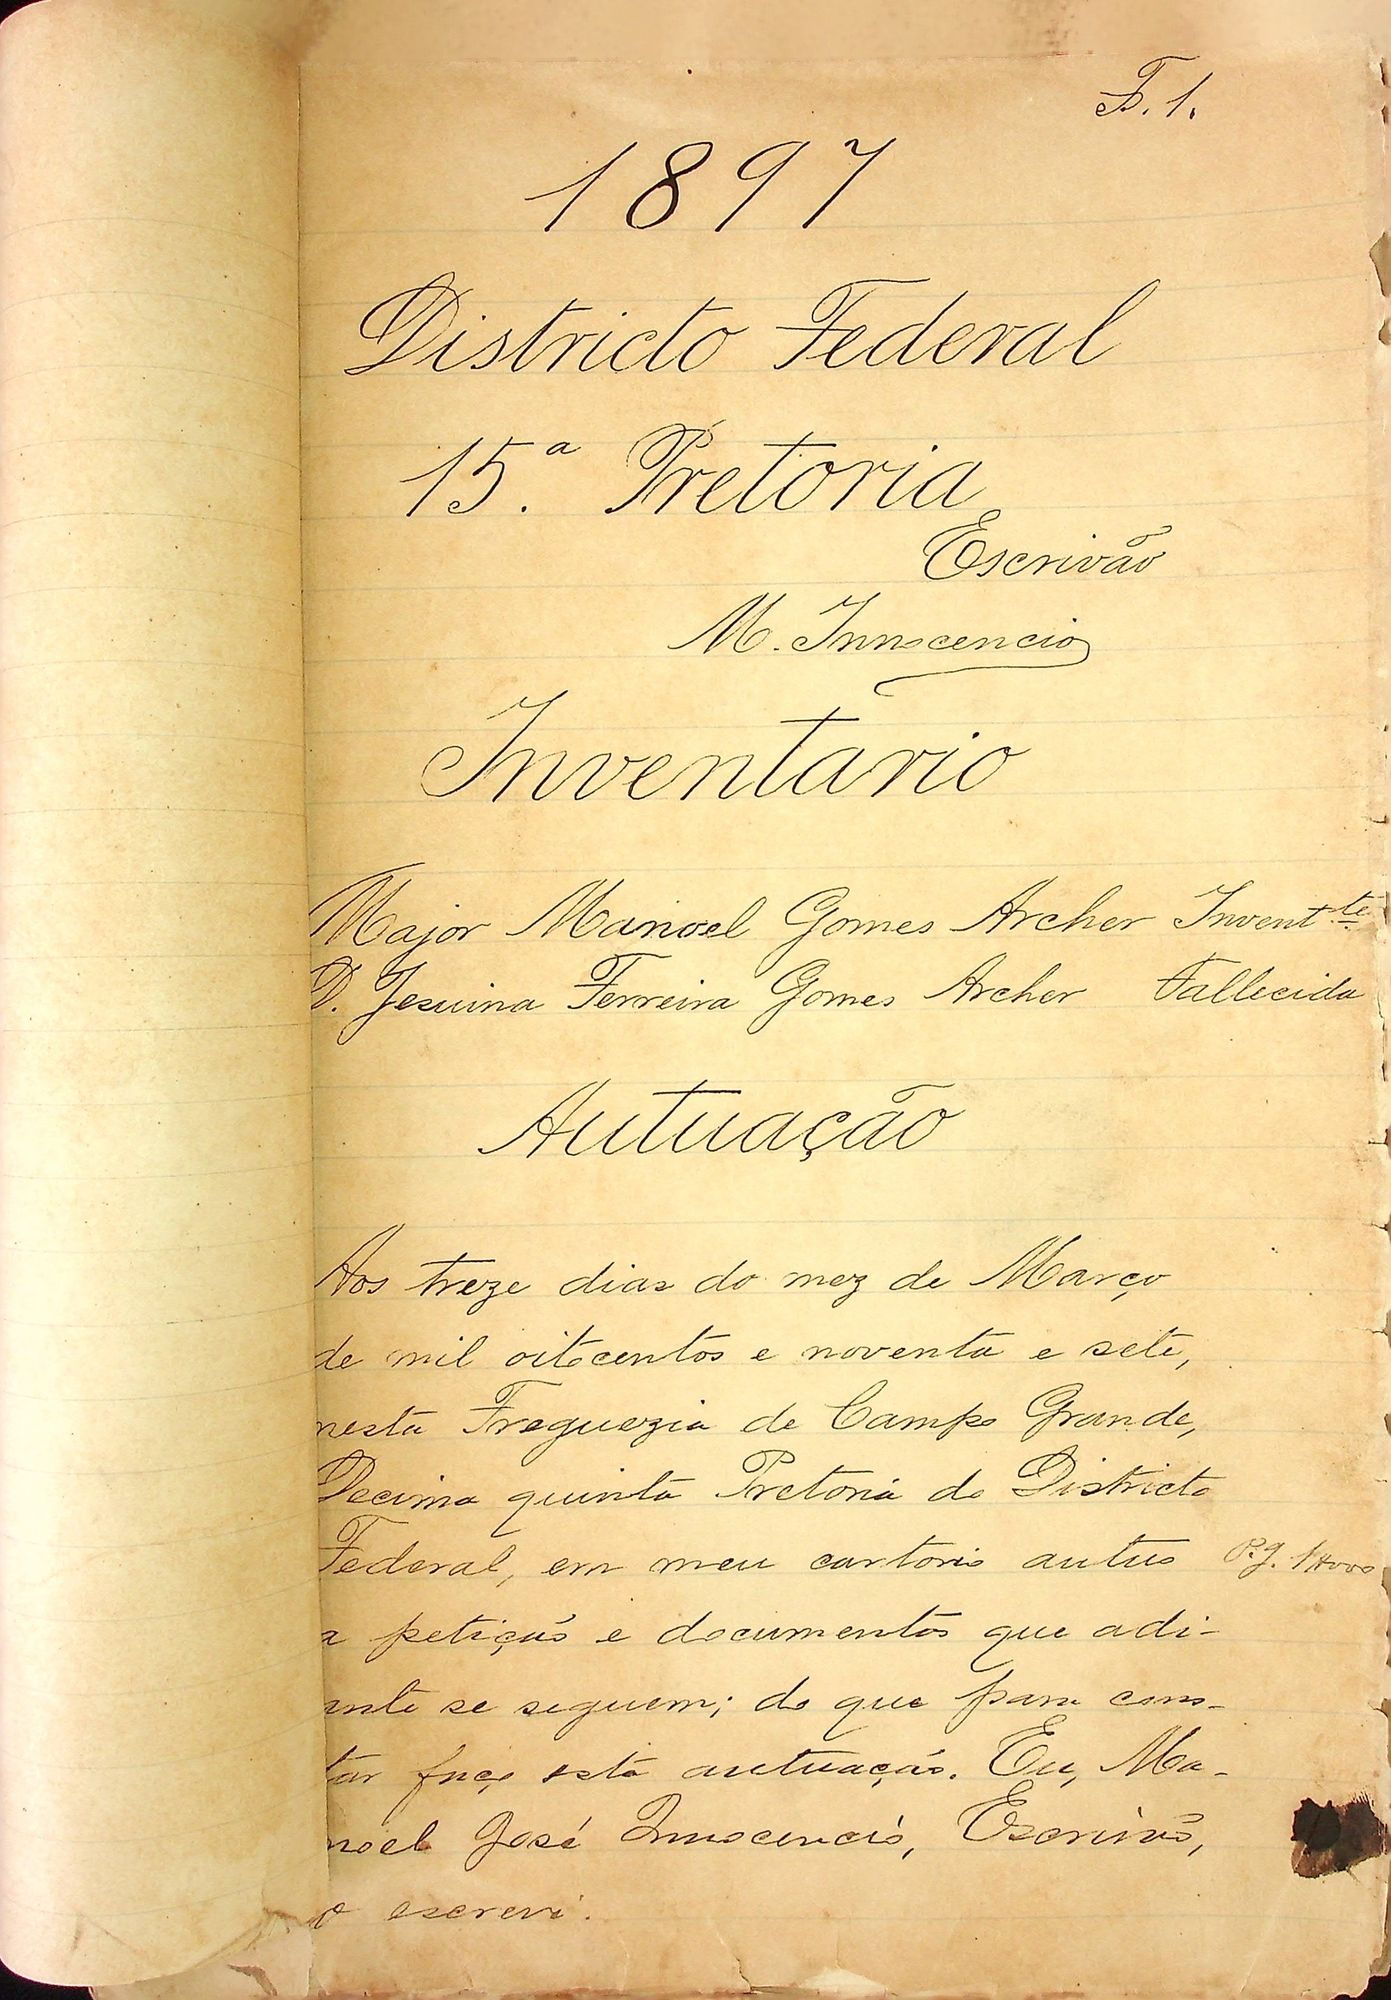 F. 1.
1897
Districto Federal
15.ª Pretoria
Escrivão
M. Innocencio
Inventario
Major Manoel Gomes Archer Invent.te
D. Jesuina Ferreira Gomes Archer Fallecida
Autuação
Aos treze dias do mez de Março
de mil oitocentos e noventa e sete,
nesta Freguezia de Campo Grande,
Decima quinta Pretoria do Districto
Federal, em meu cartorio autuo
P.g. 1#000
a petição e documentos que adi-
ante se seguem; do que para cons-
tar faço esta autuação. Eu, Ma-
noel José Innocencio, Escrivão,
o escrevi.